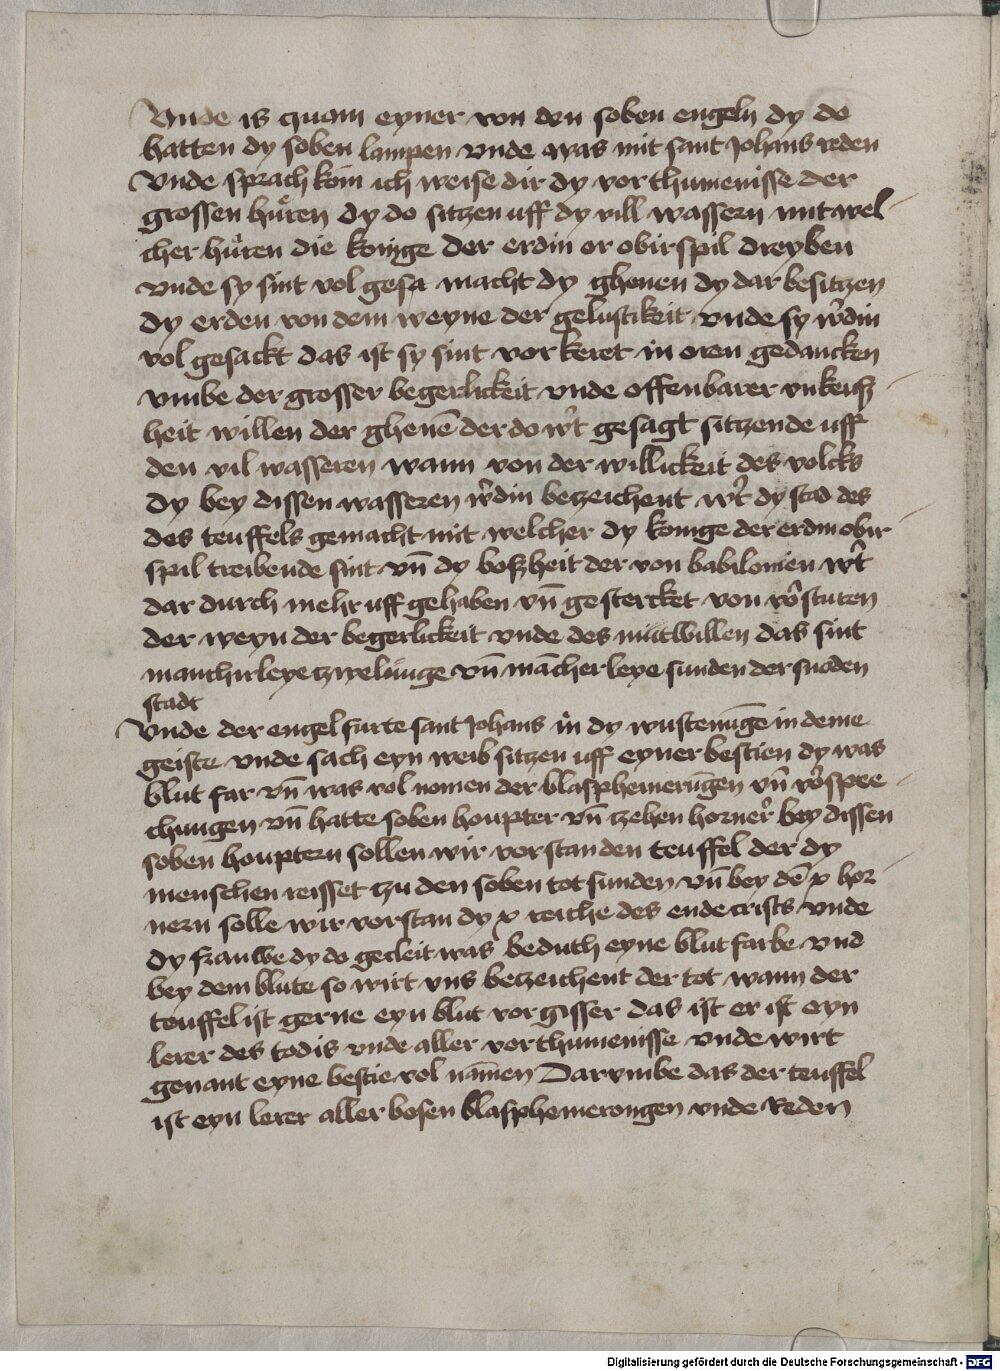 Vnde is quam eyner von den soben engeln dy do
hatten dy soben lampen vnde was mit sant Johans reden
Vnde sprach kom ich weise dir dy vorthumenisse der
grossen hůren dy do sitzen uff dy vill wassern mit wel-
cher hůren die konige der erdin or obirspil dreyben
vnde sy sint vol gesa macht dy ghenen dy dar besitzen
dy erden von dem weyne der gelustikeit vnde sy w'din
vol gesackt das ist sy sint vorkeret in oren gedancken
vmbe der grosser begerlickeit vnde offenbarer vnkeusz-
heit willen der ghenē der do w't gesagt sitzende uff
den vil wasseren wann von der willickeit des volcks
dy bey dissen wasseren w'din betzeichent w't dy stad des
des teuffels gemacht mit welcher dy konige der erdin obir-
spil treibende sint vn̄ dy boszheit der von babilonien w't
dar durch mehr uff gehaben vn̄ gestercket von v'ostuten
der weyn der begerlickeit vnde des mutwillen das sint
manchirleye tzwelunge vn̄ mācher leye sunden der snoden
stadt
Vnde der engel furte sant Johans in dy wustenūge in deme
geiste vnde sach eyn weib sitzen uff eyner bestien dy was
blut far vn̄ was vol nomen der blasphemerūgen vn̄ v'spre-
chungen vn̄ hatte soben houpter vn̄ tzehen horner' bey dissen
soben houptern sollen wir vorstan den teuffel der dy
menschen reisset tzu den soben tot sunden vn̄ bey dē x hor-
nern solle wir vorstan dy x reiche des endecrists vnde
dy frauwe dy do gecleit was beduth eyne blut farbe vnd
bey dem blute so wirt vns betzeichent der tot wann der
teuffel ist gerne eyn blut vorgisser das ist er ist eyn
lerer des todis vnde aller vorthumenisse vnde wirt
genant eyne bestie vol nāmen Darvmbe das der teuffel
ist eyn lerer aller bosen blasphemerongen vnde Reden
Digitalisierung gefördert durch die Deutsche Forschungsgemeinschaft - DFG